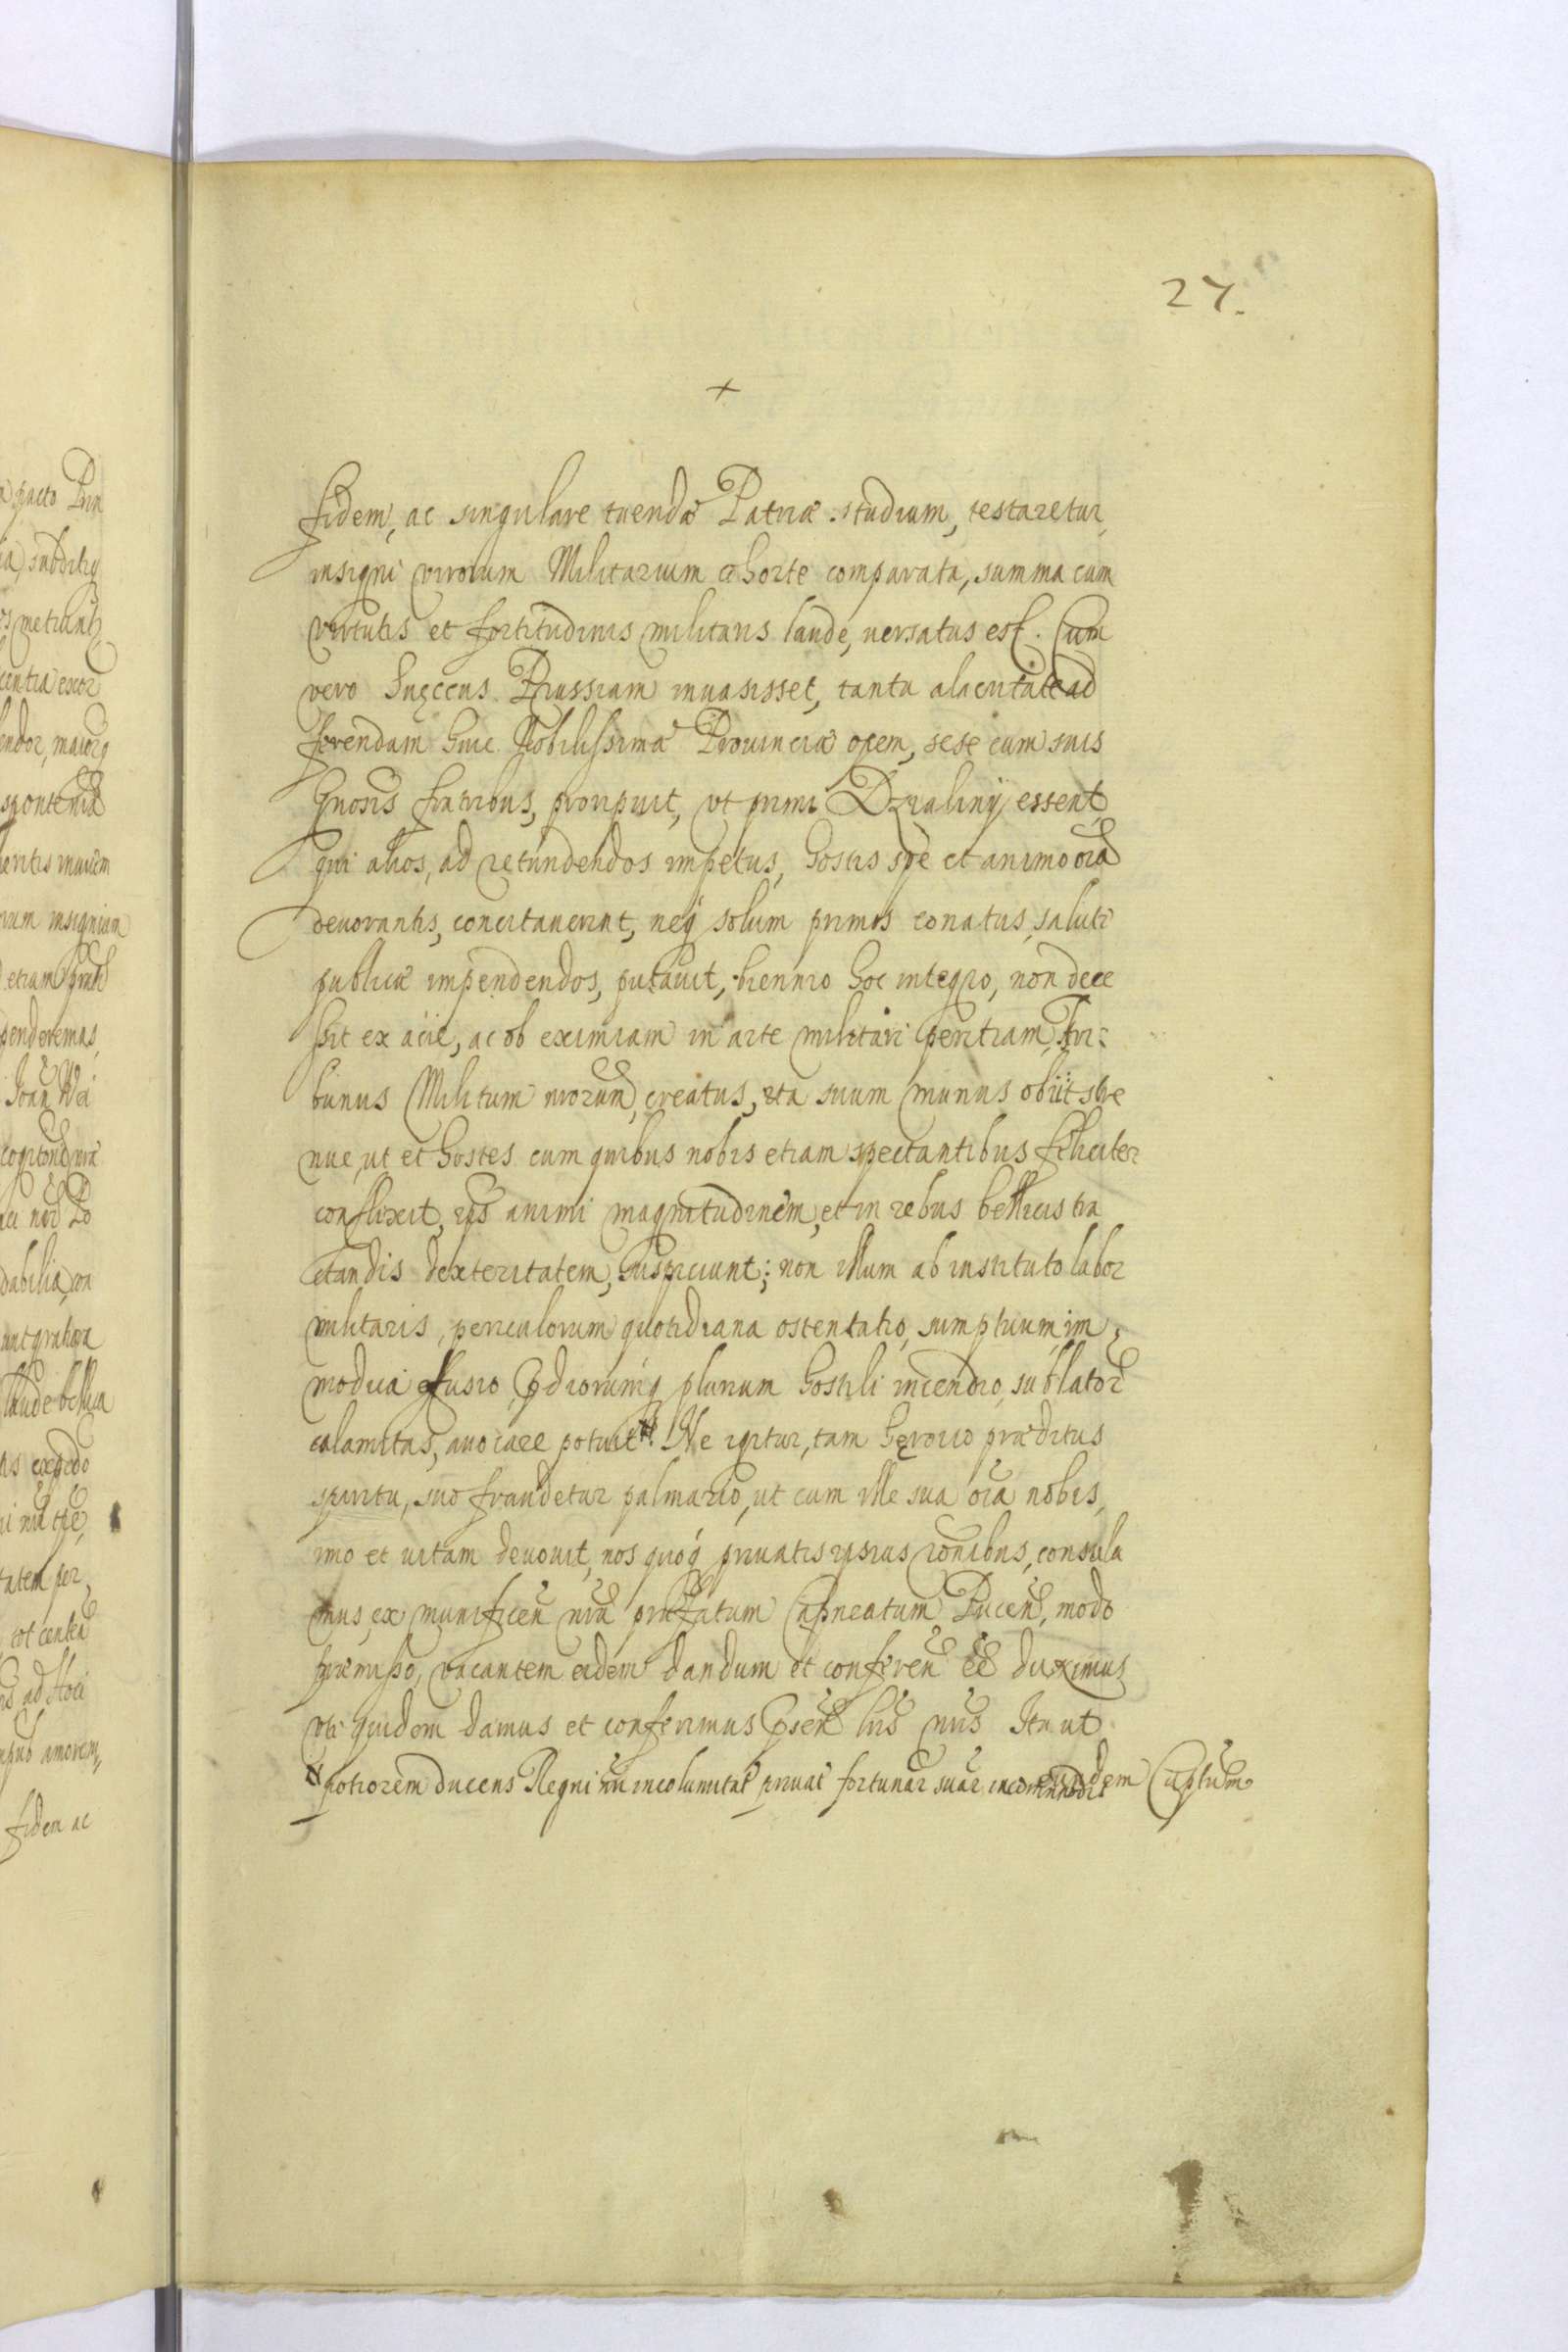 27.
+
fidem, ac singulare tuendæ Patriæ studium, testaretur,
insigni virorum Militarium cohorte comparata, summa cum
virtutis et fortitudinis militaris laude, versatus est. Cum
vero Suęcus Prussiam inuasisset, tanta alacritate ad
ferendam huic Nobilissimæ Prouinciæ opem, sese cum suis
Gnosis fratribus, proripuit, ut primi Dzialinÿ essent,
qui alios, ad retundendos impetus, hostis spe et animo oĩa
deuorantis, concitauerint, neq̃ solum primos conatus, saluti
publicæ impendendos, putauit, biennio hoc integro, non dece
ssit ex acie, ac ob eximiam in arte militari peritiam, Tri:
bunus Militum nrorum, creatus, ita suum munus obiit stre
nue, ut et hostes cum quibus nobis etiam spectantibus feliciter
conflixit, eius animi magnitudinem, et in rebus bellicis tra
ctandis dexteritatem, suspiciunt; non illum ab instituto labor
militaris, periculorum quotidiana ostentatio, sumptuum im,
modica effusio, Prædiorumq̃ plurium hostili incendio, sublator̃
calamitas, auocare potuit #. Ne igitur, tam hęroico præditus
spiritu, suo fraudetur palmario, ut cum ille sua oĩa nobis,
imo et vitam deuouit, nos quoq̃ priuatis ipsius rõnibus, consula
mus, ex munificeñ nrã præfatum Capneatum Puceñ, modo
præmisso, vacantem eidem dandum et confereñ eẽ duximus
uti quidem damus et conferimus Pñseñ lr̃is nr̃is Ita ut
# potiorem ducens Regni nr̃i incolumitat̃ priuat̃ fortunar̃ suar̃ incommodis
eundem Captum